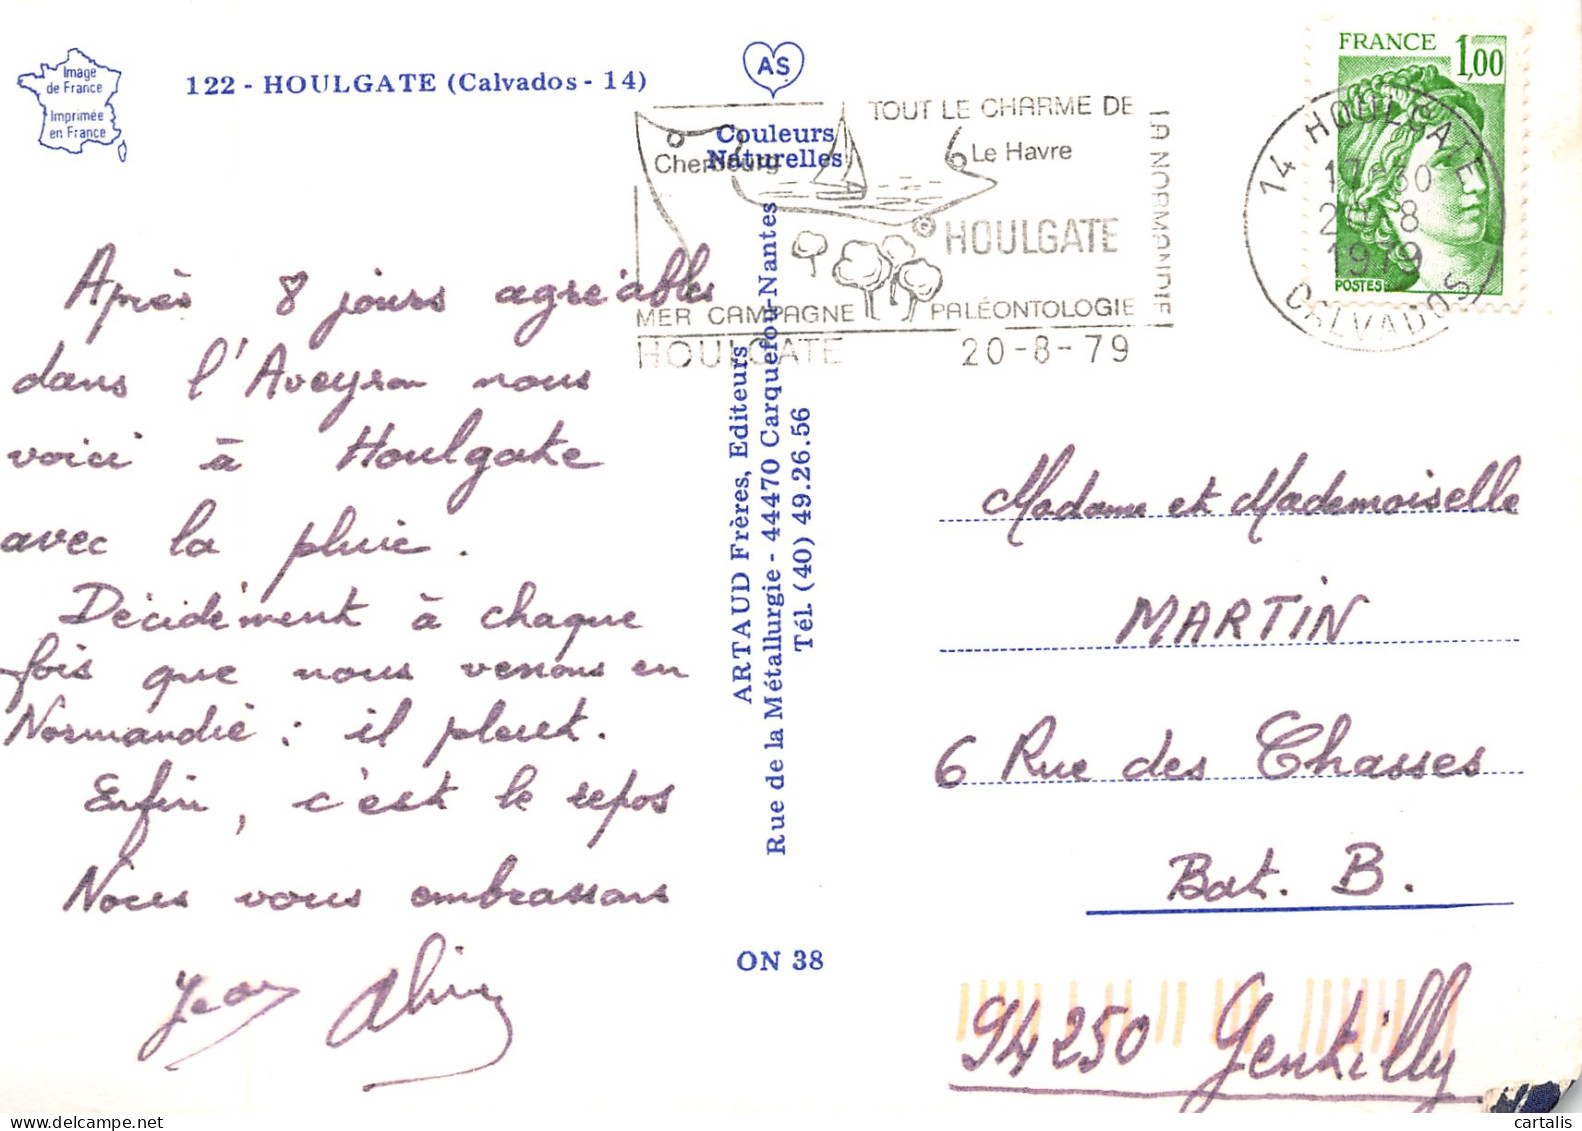 Image
de France
Imprimée
en France
122 - HOULGATE (Calvados - 14)
AS
Couleurs
Naturelles
TOUT LE CHARME DE
LA NORMANDIE
Cherbourg
Le Havre
HOULGATE
MER CAMPAGNE PALÉONTOLOGIE
HOULGATE 20-8-79
FRANCE 1,00
POSTES
14 HOULGATE
17 30
20-8
1979
CALVADOS
Après 8 jours agréables
dans l'Aveyron nous
voici à Houlgate
avec la pluie.
Décidément à chaque
fois que nous venons en
Normandie : il pleut.
Enfin, c'est le repos
Nous vous embrassons
Jean
ARTAUD Frères, Editeurs
Rue de la Métallurgie - 44470 Carquefou-Nantes
Tél. (40) 49.26.56
ON 38
Madame et Mademoiselle
MARTIN
6 Rue des Chasses
Bat. B.
94250 Gentilly
cartalis